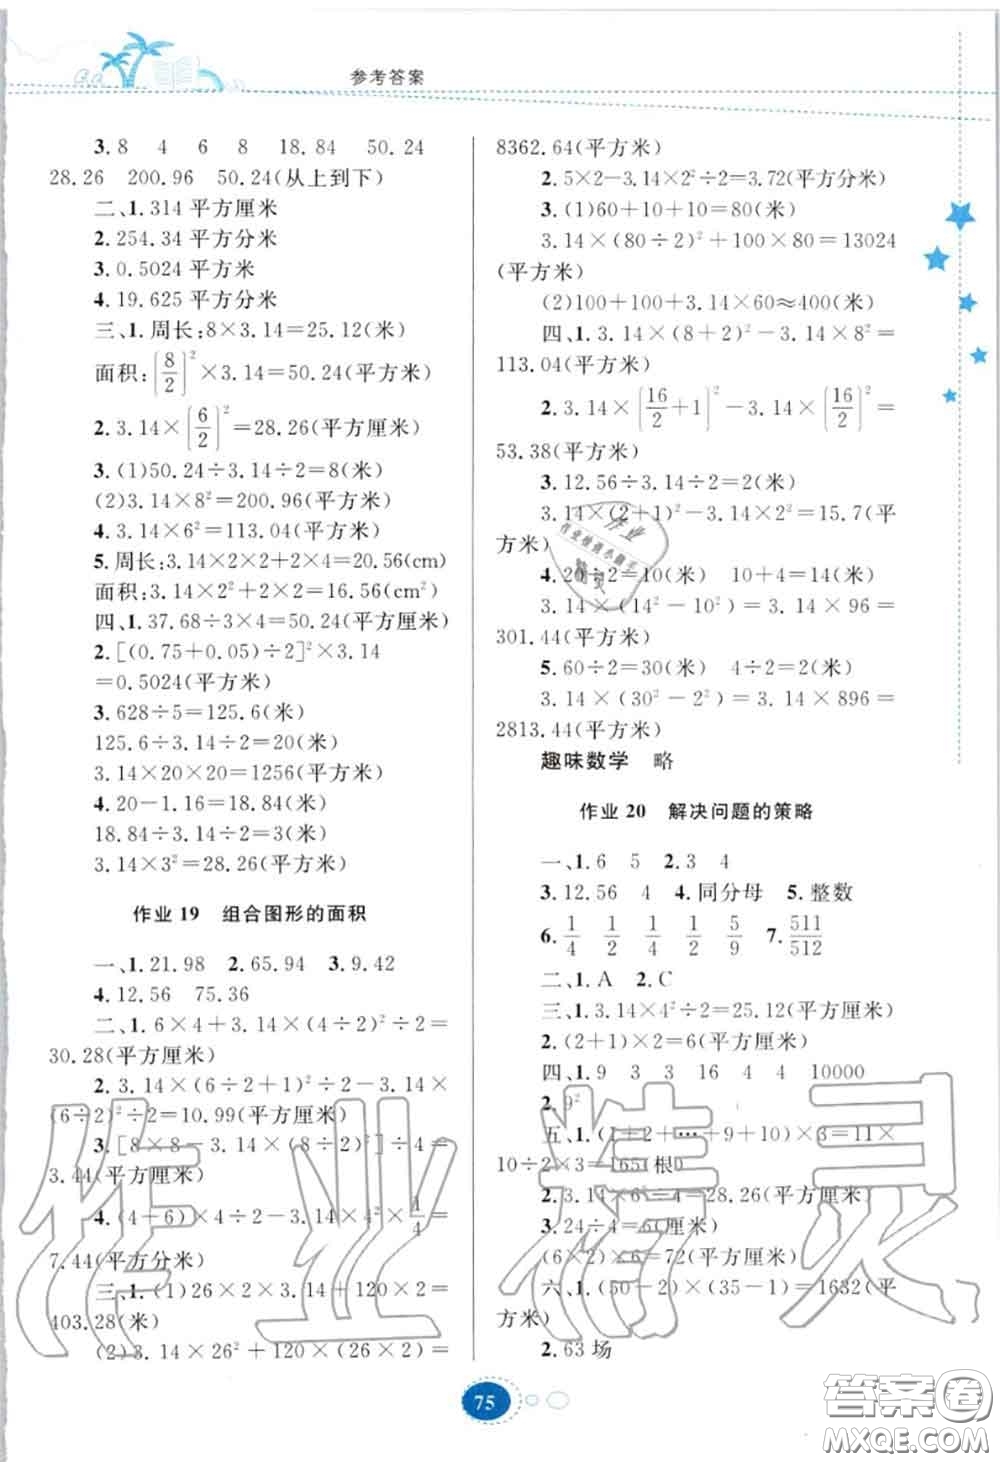 参考答案
3.8 4 6 8 18.84 50.24
28.26 200.96 50.24(从上到下)
二、1.314平方厘米
2.254.34平方分米
3.0.5024平方米
4.19.625平方分米
三、1.周长:8×3.14=25.12(米)
面积:(8/2)²×3.14=50.24(平方米)
2.3.14×(6/2)²=28.26(平方厘米)
3.(1)50.24÷3.14÷2=8(米)
(2)3.14×8²=200.96(平方米)
4.3.14×6²=113.04(平方米)
5.周长:3.14×2×2+2×4=20.56(cm)
面积:3.14×2²+2×2=16.56(cm²)
四、1.37.68÷3×4=50.24(平方厘米)
2.[(0.75+0.05)÷2]²×3.14
=0.5024(平方米)
3.628÷5=125.6(米)
125.6÷3.14÷2=20(米)
3.14×20×20=1256(平方米)
4.20-1.16=18.84(米)
18.84÷3.14÷2=3(米)
3.14×3²=28.26(平方米)
作业19 组合图形的面积
一、1.21.98 2.65.94 3.9.42
4.12.56 75.36
二、1.6×4+3.14×(4÷2)²÷2=
30.28(平方厘米)
2.3.14×(6÷2+1)²÷2-3.14×
(6÷2)²÷2=10.99(平方厘米)
3.[8×8-3.14×(8÷2)²]÷4=
3.44(平方厘米)
4.(4+6)×4÷2-3.14×4²×1/4=
7.44(平方分米)
三、1.(1)26×2×3.14+120×2=
403.28(米)
(2)3.14×26²+120×(26×2)=
8362.64(平方米)
2.5×2-3.14×2²÷2=3.72(平方分米)
3.(1)60+10+10=80(米)
3.14×(80÷2)²+100×80=13024
(平方米)
(2)100+100+3.14×60≈400(米)
四、1.3.14×(8+2)²-3.14×8²=
113.04(平方米)
2.3.14×(16/2+1)²-3.14×(16/2)²=
53.38(平方米)
3.12.56÷3.14÷2=2(米)
3.14×(2+1)²-3.14×2²=15.7(平
方米)
4.20÷2=10(米) 10+4=14(米)
3.14×(14²-10²)=3.14×96=
301.44(平方米)
5.60÷2=30(米) 4÷2=2(米)
3.14×(30²-2²)=3.14×896=
2813.44(平方米)
趣味数学 略
作业20 解决问题的策略
一、1.6 5 2.3 4
3.12.56 4 4.同分母 5.整数
6.1/4 1/2 1/4 1/2 5/9 7.511/512
二、1.A 2.C
三、1.3.14×4²÷2=25.12(平方厘米)
2.(2+1)×2=6(平方厘米)
四、1.9 3 3 16 4 4 10000
2.9²
五、1.(1+2+…+9+10)×3=11×
10÷2×3=165(根)
2.3.14×6²÷4=28.26(平方厘米)
3.24÷4=6(厘米)
(6×2)×6=72(平方厘米)
六、1.(50-2)×(35-1)=1632(平
方米)
2.63场
75
作业精灵
答案圈
MXQE.COM